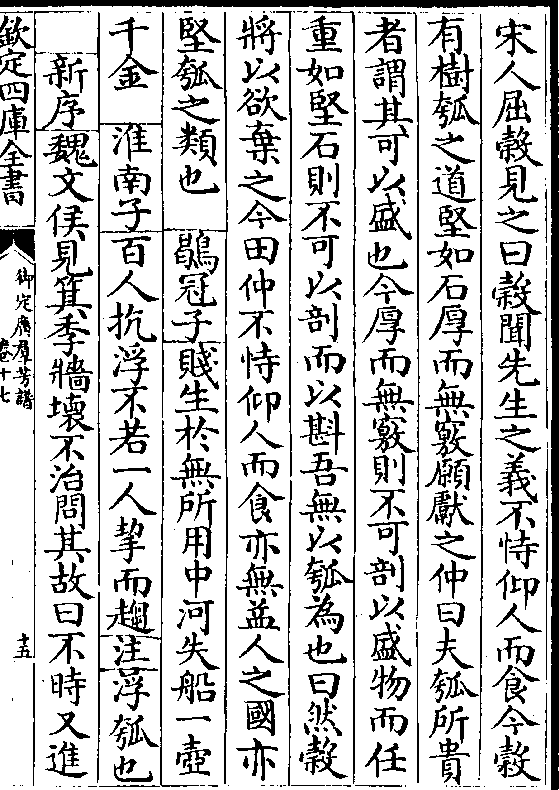 宋人屈縠見之曰縠聞先生之義不恃仰人而食今縠
有樹瓠之道堅如石厚而無竅願獻之仲曰夫瓠所貴
者謂其可以盛也今厚而無竅則不可剖以盛物而任
重如堅石則不可以剖而以斟吾無以瓠為也曰然縠
將以欲棄之今田仲不恃仰人而食亦無益人之國亦
堅瓠之類也　鶡冠子賤生於無所用中河失船一壺
千金　淮南子百人抗浮不若一人挈而趨注浮瓠也
新序魏文侯見箕季牆壞不治問其故曰不時又進
欽定四庫全書
御定廣羣芳譜
卷十七
十五